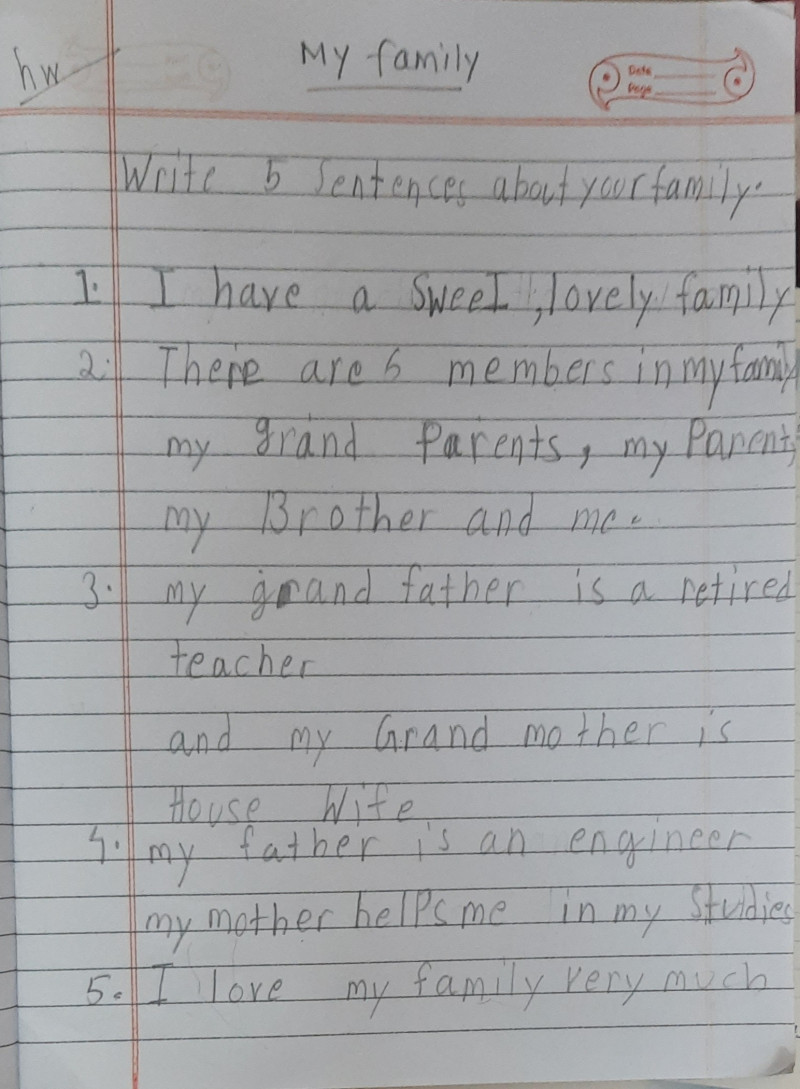 hw
My family
Date
Page
Write 5 Sentences about your family.
1. I have a Sweet, lovely family
2. There are 6 members in my family
my grand Parents, my Parents,
my Brother and me.
3. my grand father is a retired
teacher
and my Grand mother is
House Wife
4. my father is an engineer
my mother helps me in my Studies
5. I love my family very much